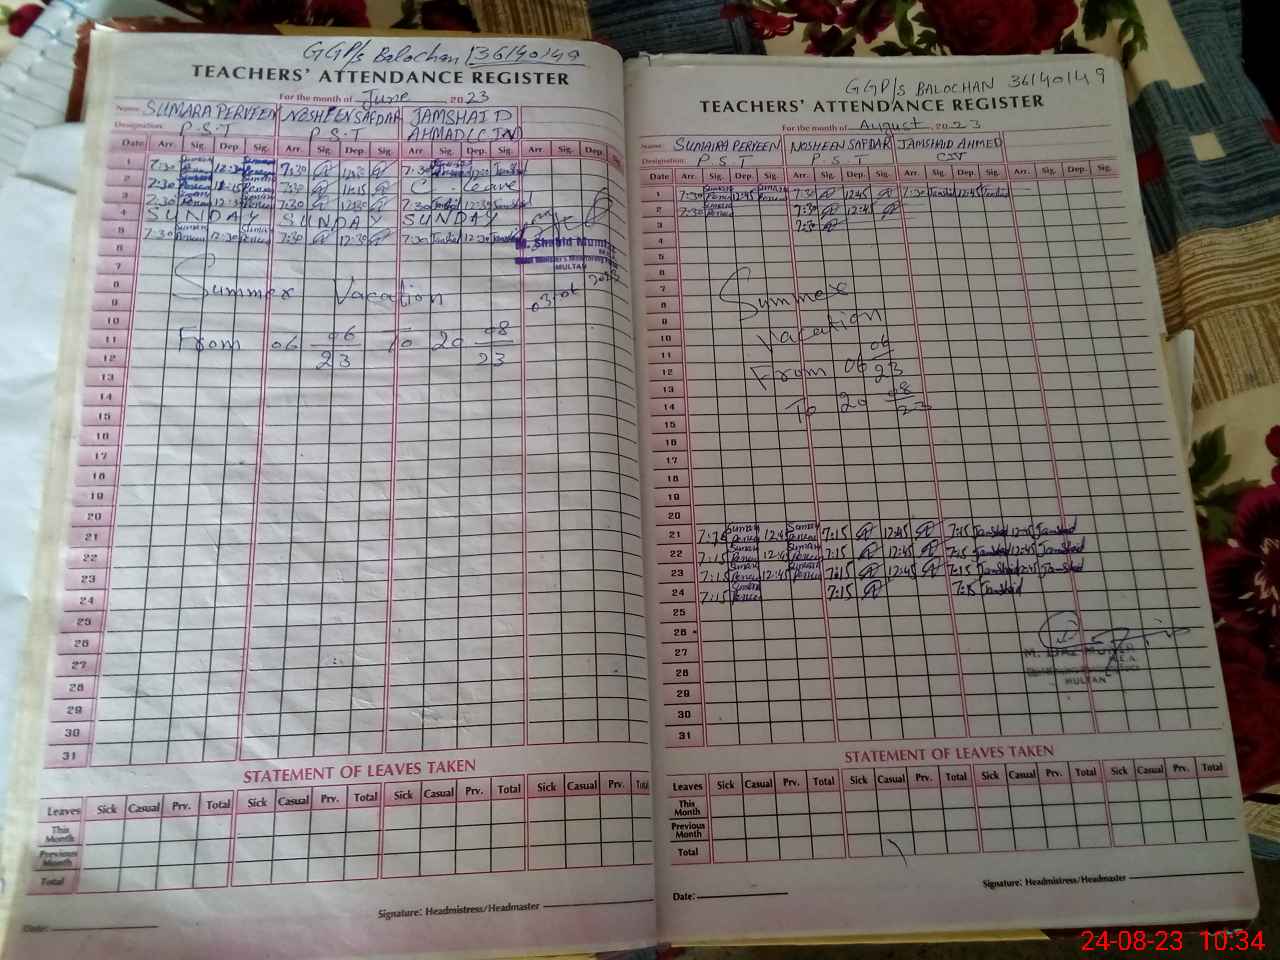 GGP/s Balochan 36140149
TEACHERS' ATTENDANCE REGISTER
For the month of June 2023
Name: SUMARA PERVEEN NOSHEEN SAFDAR JAMSHAID
Designation: P.S.T P.S.T AHMAD (C.IV)
Date Arr. Sig. Dep. Sig. Arr. Sig. Dep. Sig. Arr. Sig. Dep. Sig. Arr. Sig. Dep. Sig.
1 7:30 12:30 7:30 12:30 7:30 12:30
2 7:30 11:15 7:30 11:15 C. leave
3 7:30 12:30 7:30 12:30 7:30 12:30
4 SUNDAY SUNDAY SUNDAY
5 7:30 12:30 7:30 12:30 7:30 12:30
6
7
8 Summer Vacation
9
10
11 From 06 06/23 To 20 08/23
12
13
14
15
16
17
18
19
20
21
22
23
24
25
26
27
28
29
30
31
M. Shahid Mumtaz
MULTAN
STATEMENT OF LEAVES TAKEN
Leaves Sick Casual Prv. Total Sick Casual Prv. Total Sick Casual Prv. Total Sick Casual Prv. Total
This Month
Previous Month
Total
Signature: Headmistress/Headmaster
Date:
GGP/s BALOCHAN 36140149
TEACHERS' ATTENDANCE REGISTER
For the month of August, 2023
Name: SUMAIRA PERVEEN NOSHEEN SAFDAR JAMSHAID AHMED
Designation: P.S.T P.S.T C-IV
Date Arr. Sig. Dep. Sig. Arr. Sig. Dep. Sig. Arr. Sig. Dep. Sig. Arr. Sig. Dep. Sig.
1 7:30 12:45 7:30 12:45 7:30 Jamshed 12:45 Jamshed
2 7:30 7:30 12:45
3 7:30
4
5
6
7
8 Summer
9
10 Vacation
11
12 From 06 06/23
13
14 To 20 08/23
15
16
17
18
19
20
21 7:15 12:45 7:15 12:45 7:15 Jamshed 12:45 Jamshed
22 7:15 12:45 7:15 12:45 7:15 Jamshed 12:45 Jamshed
23 7:15 12:45 7:15 12:45 7:15 Jamshed 12:45 Jamshed
24 7:15 7:15 7:15 Jamshed
25
26
27
28
29
30
31
MULTAN
STATEMENT OF LEAVES TAKEN
Leaves Sick Casual Prv. Total Sick Casual Prv. Total Sick Casual Prv. Total Sick Casual Prv. Total
This Month
Previous Month
Total
Signature: Headmistress/Headmaster
Date:
24-08-23 10:34